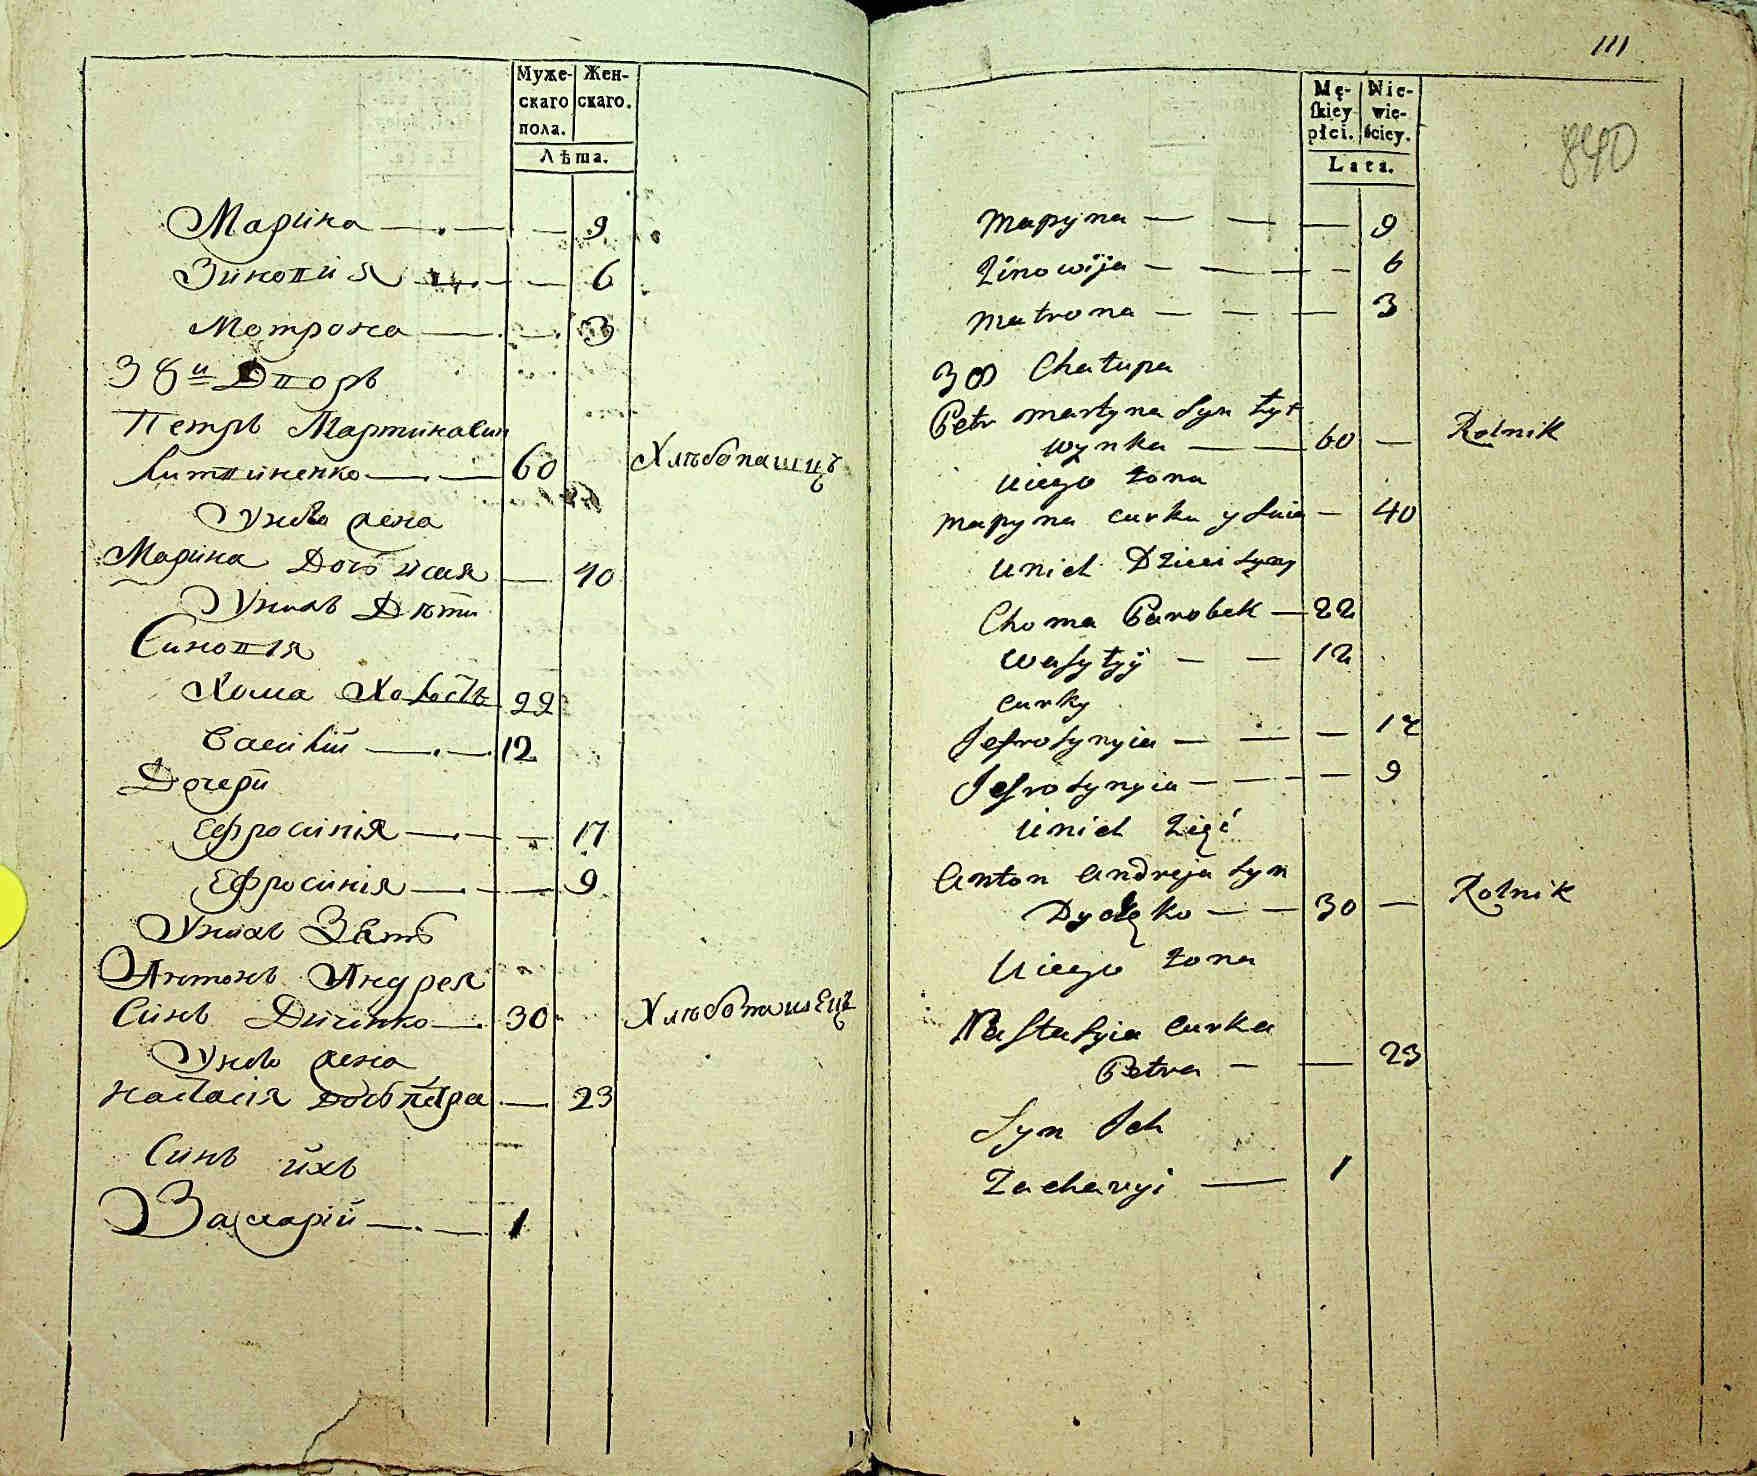 Муже-
скаго
пола.
Жен-
скаго.
Лѣта.
Марина — — — 9
Зиновия — — — 6
Мотрона — — 3
38й Дворъ
Петръ Мартина Син
Литвиненко — — 60 Хлѣбопашцъ
У него жена
Марина Дочь Исая — 40
У нихъ Дѣти
Синовія
Хома Холостъ 22
Василій — — 12
Дочери
Ефросинія — — — 17
Ефросинія — — — 9
У нихъ Зять
Антонъ Андрея
Синъ Диченко — 30 Хлѣбопашецъ
У него жена
Настасія дочь Петра — 23
Синъ ихъ
Захарій — — 1
111
840
Mę-
skiey
płci.
Nie-
wie-
ściey.
Lata.
Maryna — — — 9
Zinowija — — — — 6
Matrona — — — 3
38 Chałupa
Petr Martyna Syn Łyt
wynka — — 60 — Rolnik
U iego żona
Maryna curka — 40
U nich Dzieci Syny
Choma Parobek — 22
Wasyłÿ — — 12
Curky
Jefrosynyia — — — 17
Jefrosynyia — — — — 9
U nich Zięć
Anton Andreja Syn
— — 30 — Rolnik
U iego żona
Nastasyia Curka
Petra — — 23
Syn Ich
Zacharyi — 1